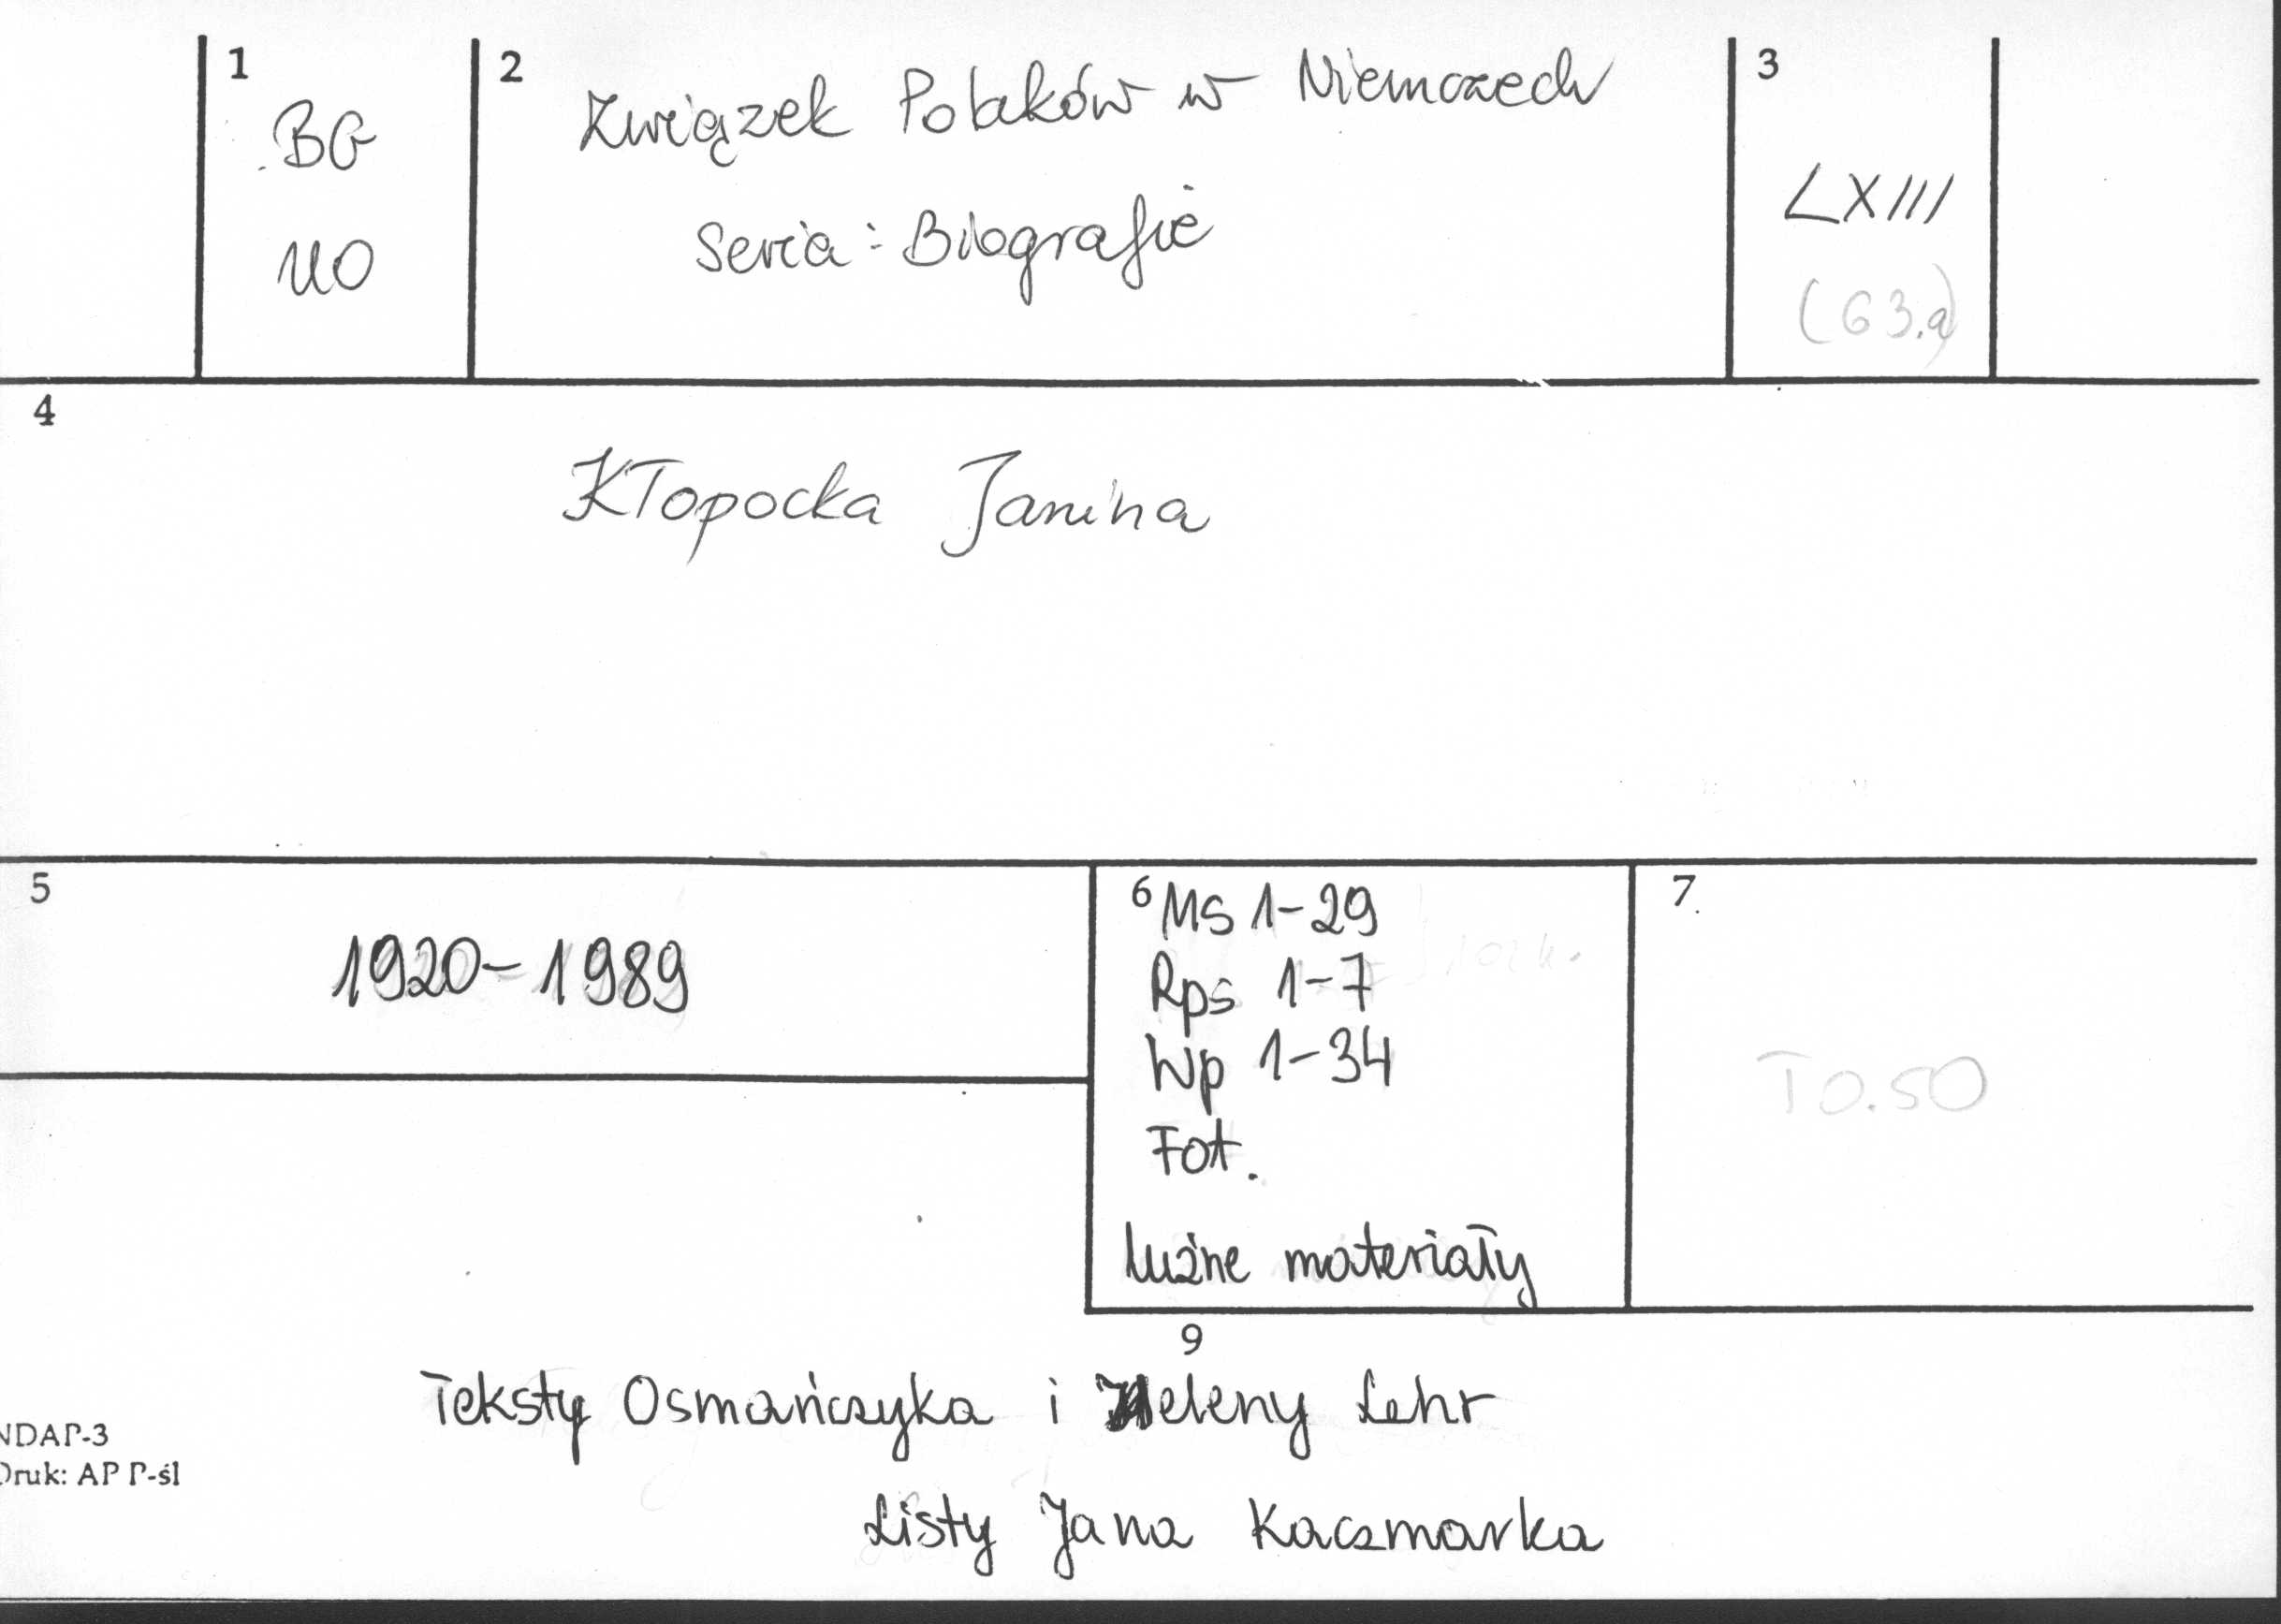 1
BG
UO
2
Związek Polaków w Niemczech
Seria: Biografie
3
LXIII
(63.a)
4
Kłopocka Janina
5
1920-1989
6
MS 1-29
Rps 1-7
Wp 1-34
Fot.
luźne materiały
7.
T0.50
9
Teksty Osmańczyka i Heleny Lehr
Listy Jana Kaczmarka
NDAP-3
Druk: AP P-śl